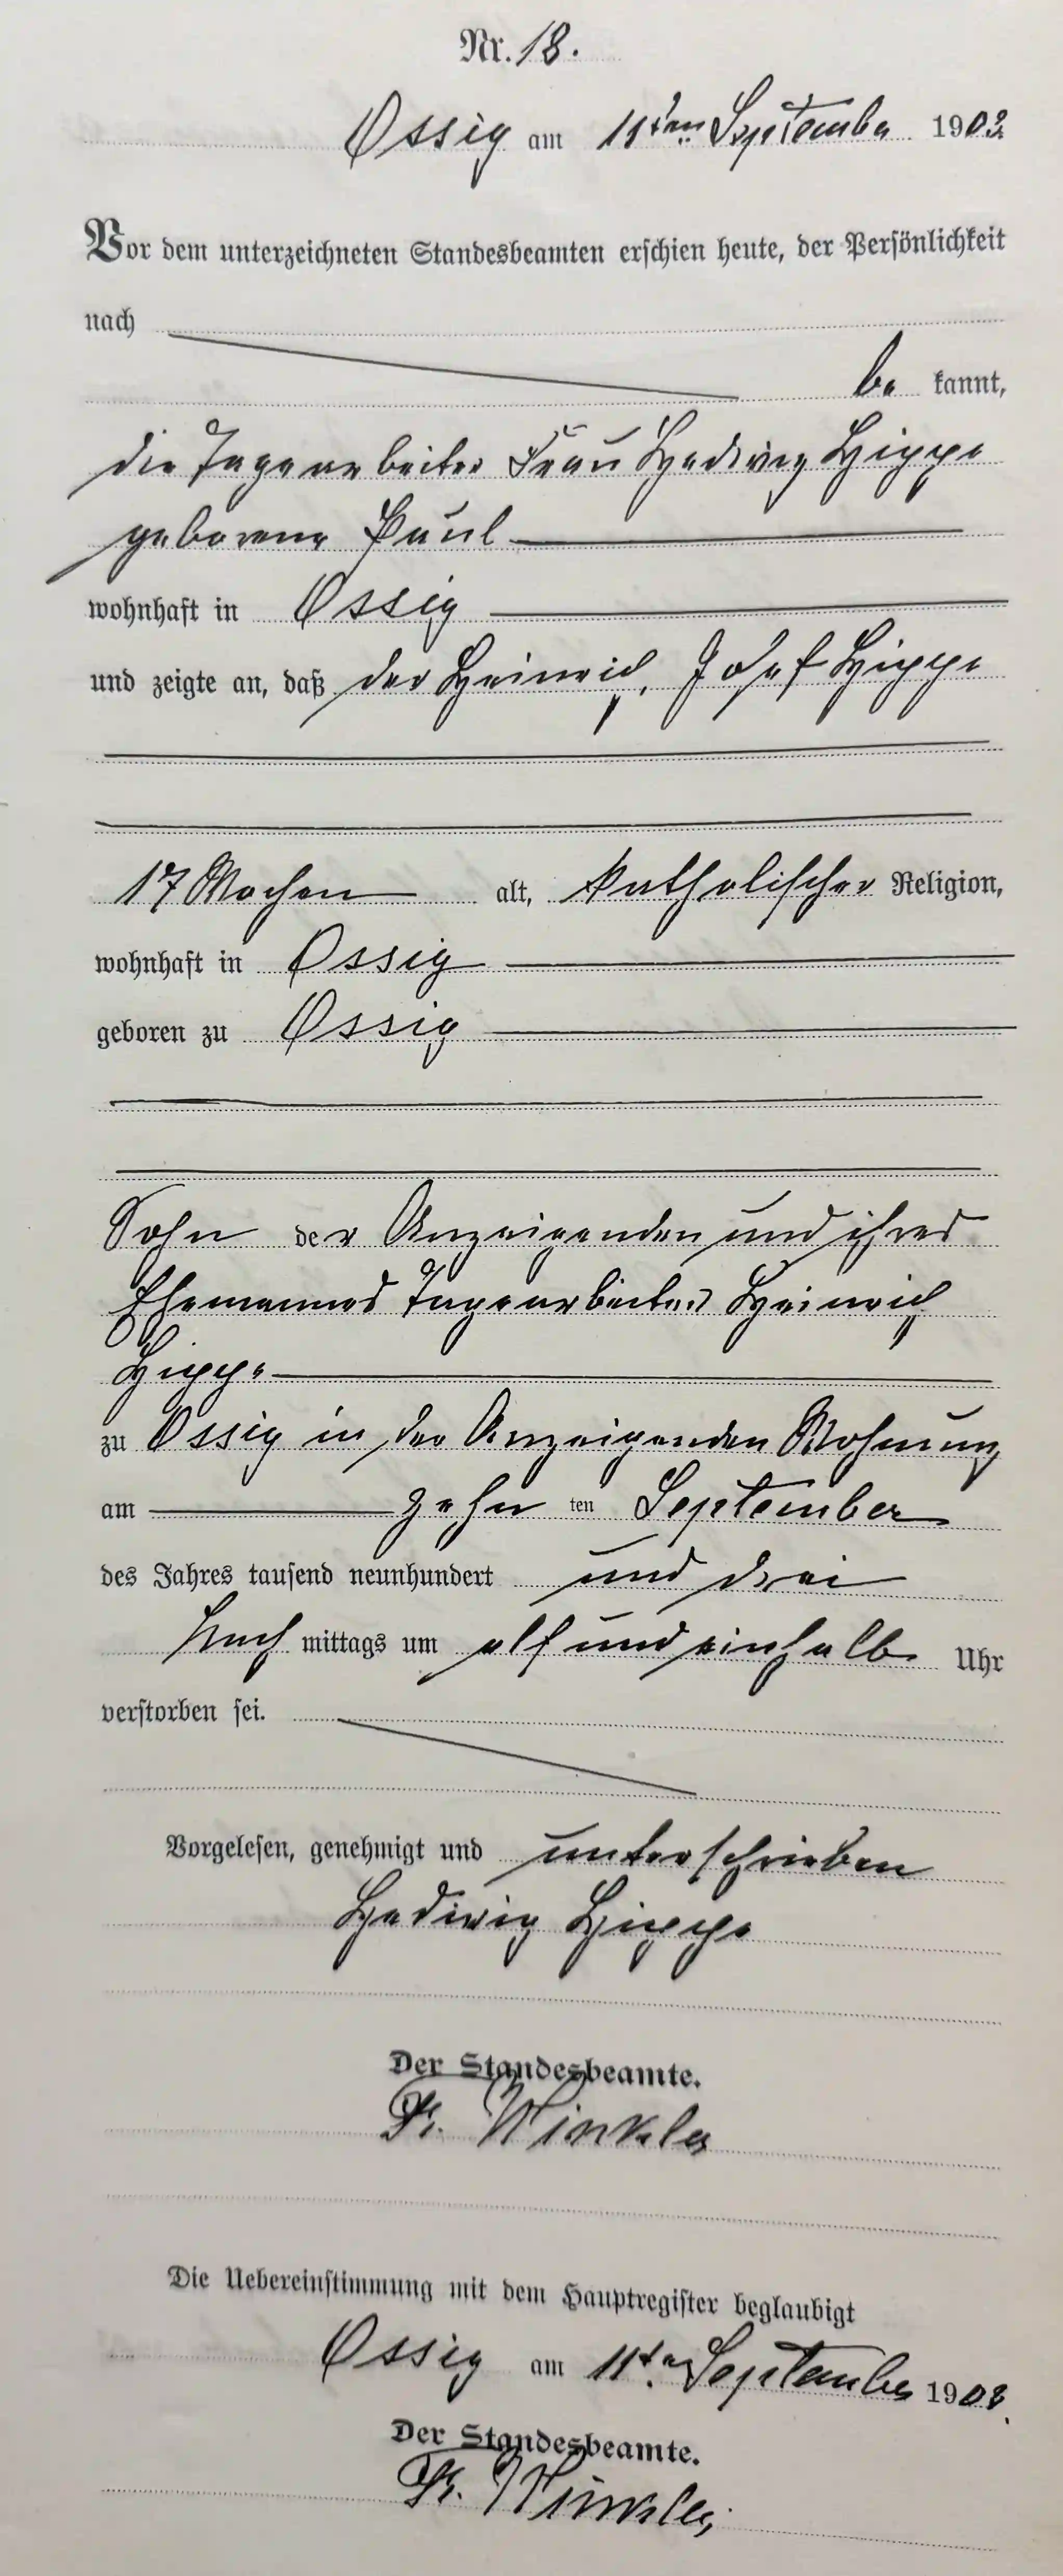 Nr. 18.
Ossig am 11ten September 1903
Vor dem unterzeichneten Standesbeamten erschien heute, der Persönlichkeit
nach
be kannt,
die Tagearbeiter Frau Hedwig Hippe
geborene Paul
wohnhaft in Ossig
und zeigte an, daß der Heinrich, Josef Hippe
17 Wochen alt, katholischer Religion,
wohnhaft in Ossig
geboren zu Ossig
Sohn der Anzeigenden und ihres
Ehemannes Tagearbeiters Heinrich
Hippe
zu Ossig in der Anzeigenden Wohnung
am zehn ten September
des Jahres tausend neunhundert und drei
Nach mittags um elf und einhalb Uhr
verstorben sei.
Vorgelesen, genehmigt und unterschrieben
Hedwig Hippe
Der Standesbeamte.
Fr. Winkler
Die Uebereinstimmung mit dem Hauptregister beglaubigt
Ossig am 11ten September 1903.
Der Standesbeamte.
Fr. Winkler